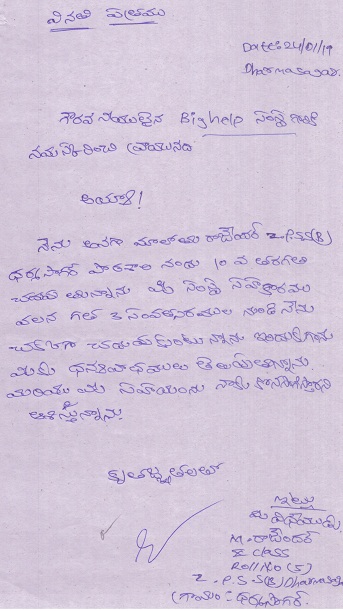 వినతి పత్రము
Date: 24/01/19
Dharmasagar.
గౌరవనీయులైన Bighelp సంస్థ గారికి
నమస్కరించి వ్రాయునది
అయ్యా!
నేను అనగా మాలోతు రాజేందర్ Z.P.S.S(B)
ధర్మసాగర్ పాఠశాల నందు 10 వ తరగతి
చదువుతున్నాను మీ సంస్థ సహకారము
వలన గత 3 సంవత్సరముల నుండి నేను
చక్కగా చదువుకుంటున్నాను ఇందుకుగాను
మీకు ధన్యవాదములు తెలియజేస్తున్నాను.
మరియు మీ సహాయంను నాకు కొనసాగిస్తారని
ఆశిస్తున్నాను.
కృతజ్ఞతలతో
ఇట్లు
మీ విధేయుడు,
M. రాజేందర్
class
Roll No (5)
Z.P.S.S(B) Dharmasagar
గ్రామం: ధర్మసాగర్.